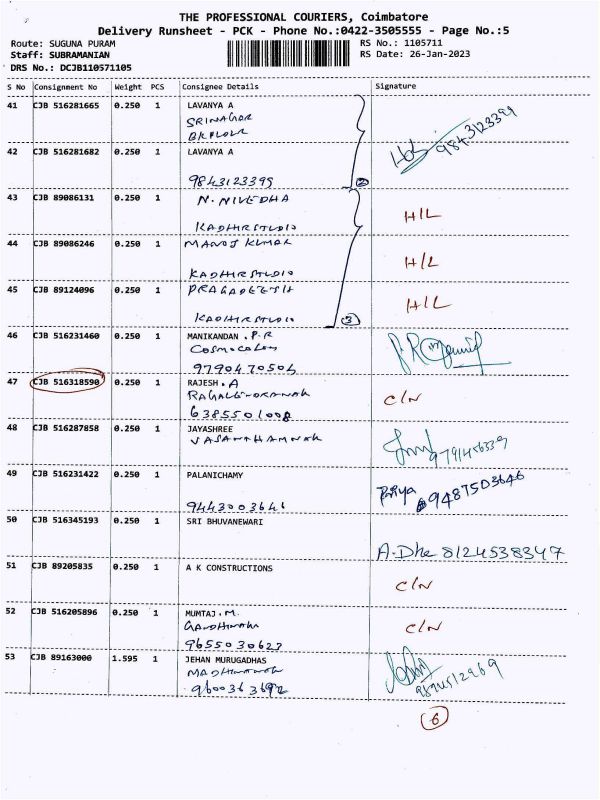 THE PROFESSIONAL COURIERS, Coimbatore
Delivery Runsheet - PCK - Phone No.:0422-3505555 - Page No.:5
Route: SUGUNA PURAM RS No.: 1105711
Staff: SUBRAMANIAN RS Date: 26-Jan-2023
DRS No.: DCJB110571105
S No Consignment No Weight PCS Consignee Details Signature
41 CJB 516281665 0.250 1 LAVANYA A
SRINAGAR
9843123399
42 CJB 516281682 0.250 1 LAVANYA A
9843123399 2
43 CJB 89086131 0.250 1 N. NIVEDHA
KADHIRSTUDIO H/L
44 CJB 89086246 0.250 1 MANOJ KUMAR
KADHIRSTUDIO H/L
45 CJB 89124096 0.250 1 PRAGADEESH
KADHIRSTUDIO 3 H/L
46 CJB 516231460 0.250 1 MANIKANDAN . P. R
9790470504
47 CJB 516318590 0.250 1 RAJESH . A
6385501008 C/N
48 CJB 516287858 0.250 1 JAYASHREE
49 CJB 516231422 0.250 1 PALANICHAMY
9443003646 Priya 9487503646
50 CJB 516345193 0.250 1 SRI BHUVANEWARI
A. Dhe 8124538347
51 CJB 89205835 0.250 1 A K CONSTRUCTIONS
C/N
52 CJB 516205896 0.250 1 MUMTAJ . M.
9655030627 C/N
53 CJB 89163000 1.595 1 JEHAN MURUGADHAS
9600363692
6